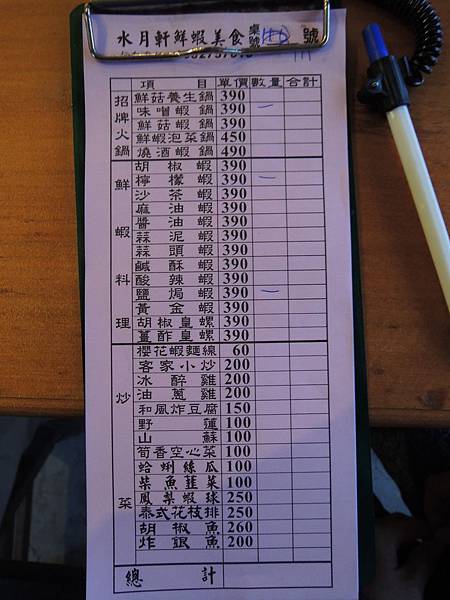 水月軒鮮蝦美食 桌號 號
項目 單價 數量 合計
招牌火鍋
鮮菇養生鍋 390
味噌蝦鍋 390 一
鮮菇蝦鍋 390
鮮蝦泡菜鍋 450
燒酒蝦鍋 490
鮮蝦料理
胡椒蝦 390
檸檬蝦 390 一
沙茶蝦 390
麻油蝦 390
醬油蝦 390
蒜泥蝦 390
蒜頭蝦 390
鹹酥蝦 390
酸辣蝦 390
鹽焗蝦 390 一
黃金蝦 390
胡椒皇螺 390
薑酢皇螺 390
炒菜
櫻花蝦麵線 60
客家小炒 200
冰醉雞 200
油蔥雞 200
和風炸豆腐 150
野蓮 100
山蘇 100
筍香空心菜 100
蛤蜊絲瓜 100
柴魚韭菜 100
鳳梨蝦球 250
泰式花枝排 250
胡椒魚 260
炸銀魚 200
總計